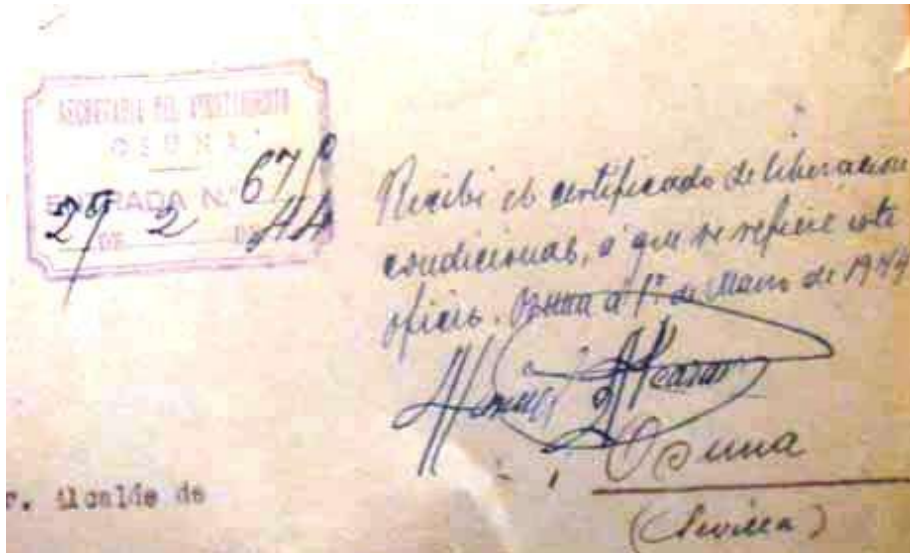 SECRETARIA DEL AYUNTAMIENTO
OSUNA
ENTRADA N.º 671
29 DE 2 DE 44
Recibí el certificado de liberacion
condicional, a que se refiere este
oficio. Osuna a 1º de Marzo de 1944
Manuel
r. Alcalde de
Osuna
(Sevilla)